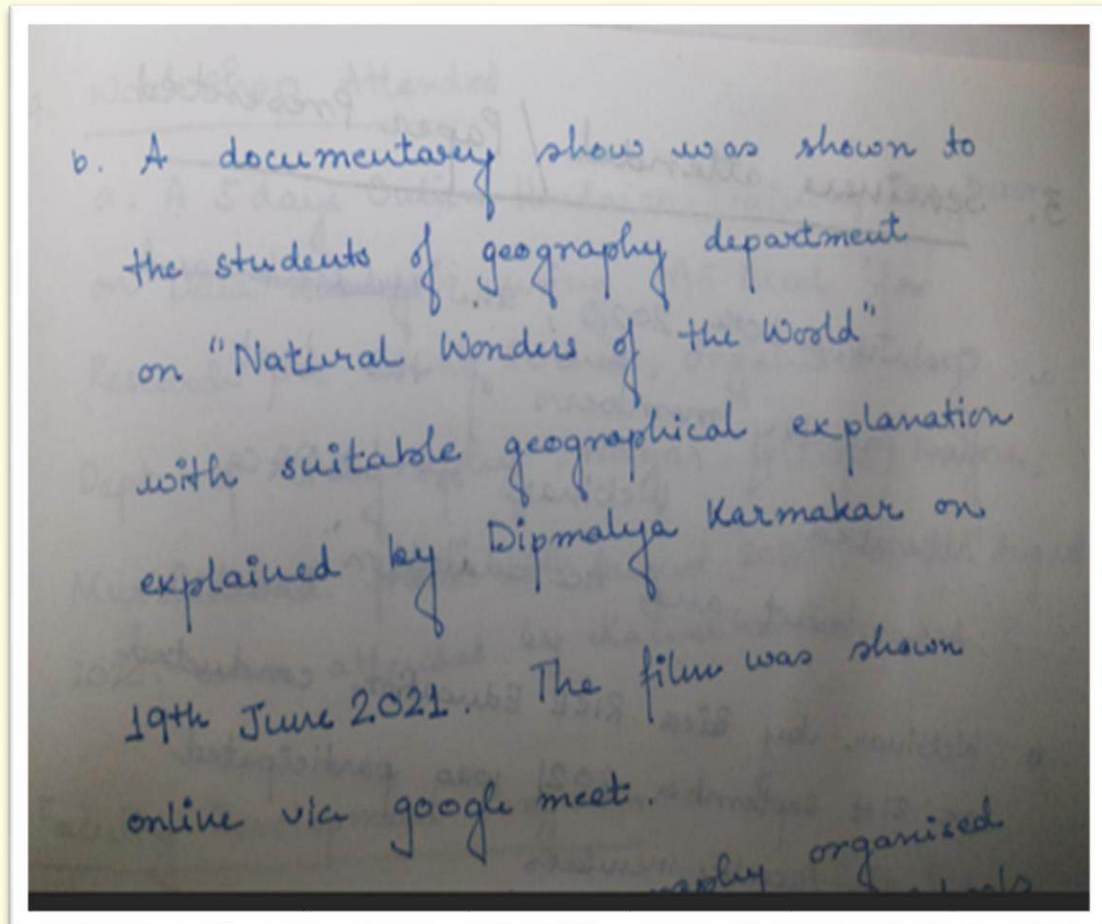 b. A documentary show was shown to
the students of geography department
on "Natural Wonders of the World"
with suitable geographical explanation
explained by Dipmalya Karmakar on
19th June 2021. The film was shown
online via google meet.
organised